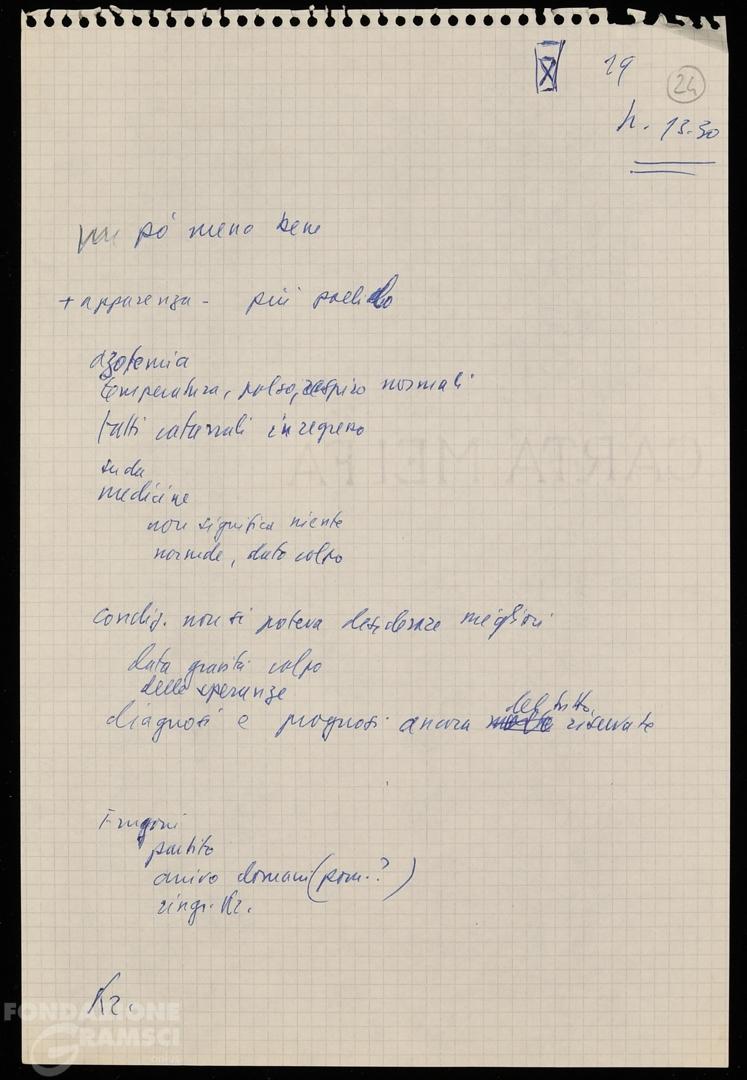 X 19 24
h. 13.30
un pó meno bene
+ apparenza - più pallido
azotemia
temperatura, polso, respiro normali
fatti catarrali in regresso
suda
medicine
non significa niente
normale, dato colpo
condiz. non si poteva desiderare migliori
data gravità colpo
delle speranze
del tutto
diagnosi e prognosi ancora riservate
Frugoni
partito
arrivo domani (pom.?)
ringr. Kr.
Kr.
CARTA MELFA
FONDAZIONE
GRAMSCI